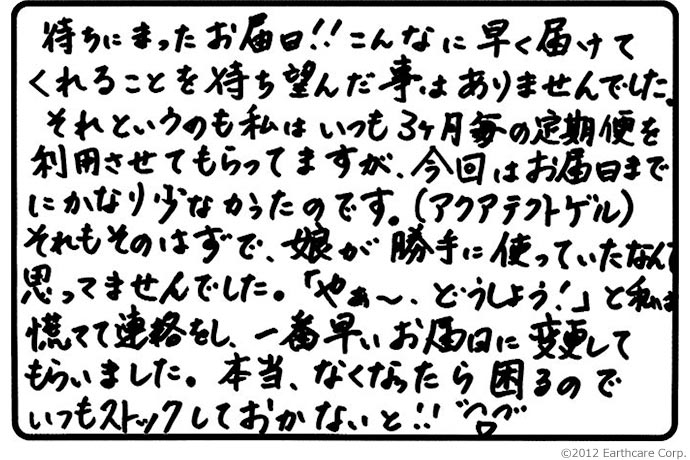 待ちにまったお届日!!こんなに早く届けて
くれることを待ち望んだ事はありませんでした。
それというのも私はいつも3ヶ月毎の定期便を
利用させてもらってますが、今回はお届日まで
にかなり少なかったのです。(アクアテクトゲル)
それもそのはずで、娘が勝手に使っていたなんて
思ってませんでした。「やぁ〜、どうしよう!」と私は
慌てて連絡をし、一番早いお届日に変更して
もらいました。本当、なくなったら困るので
いつもストックしておかないと!!
©2012 Earthcare Corp.